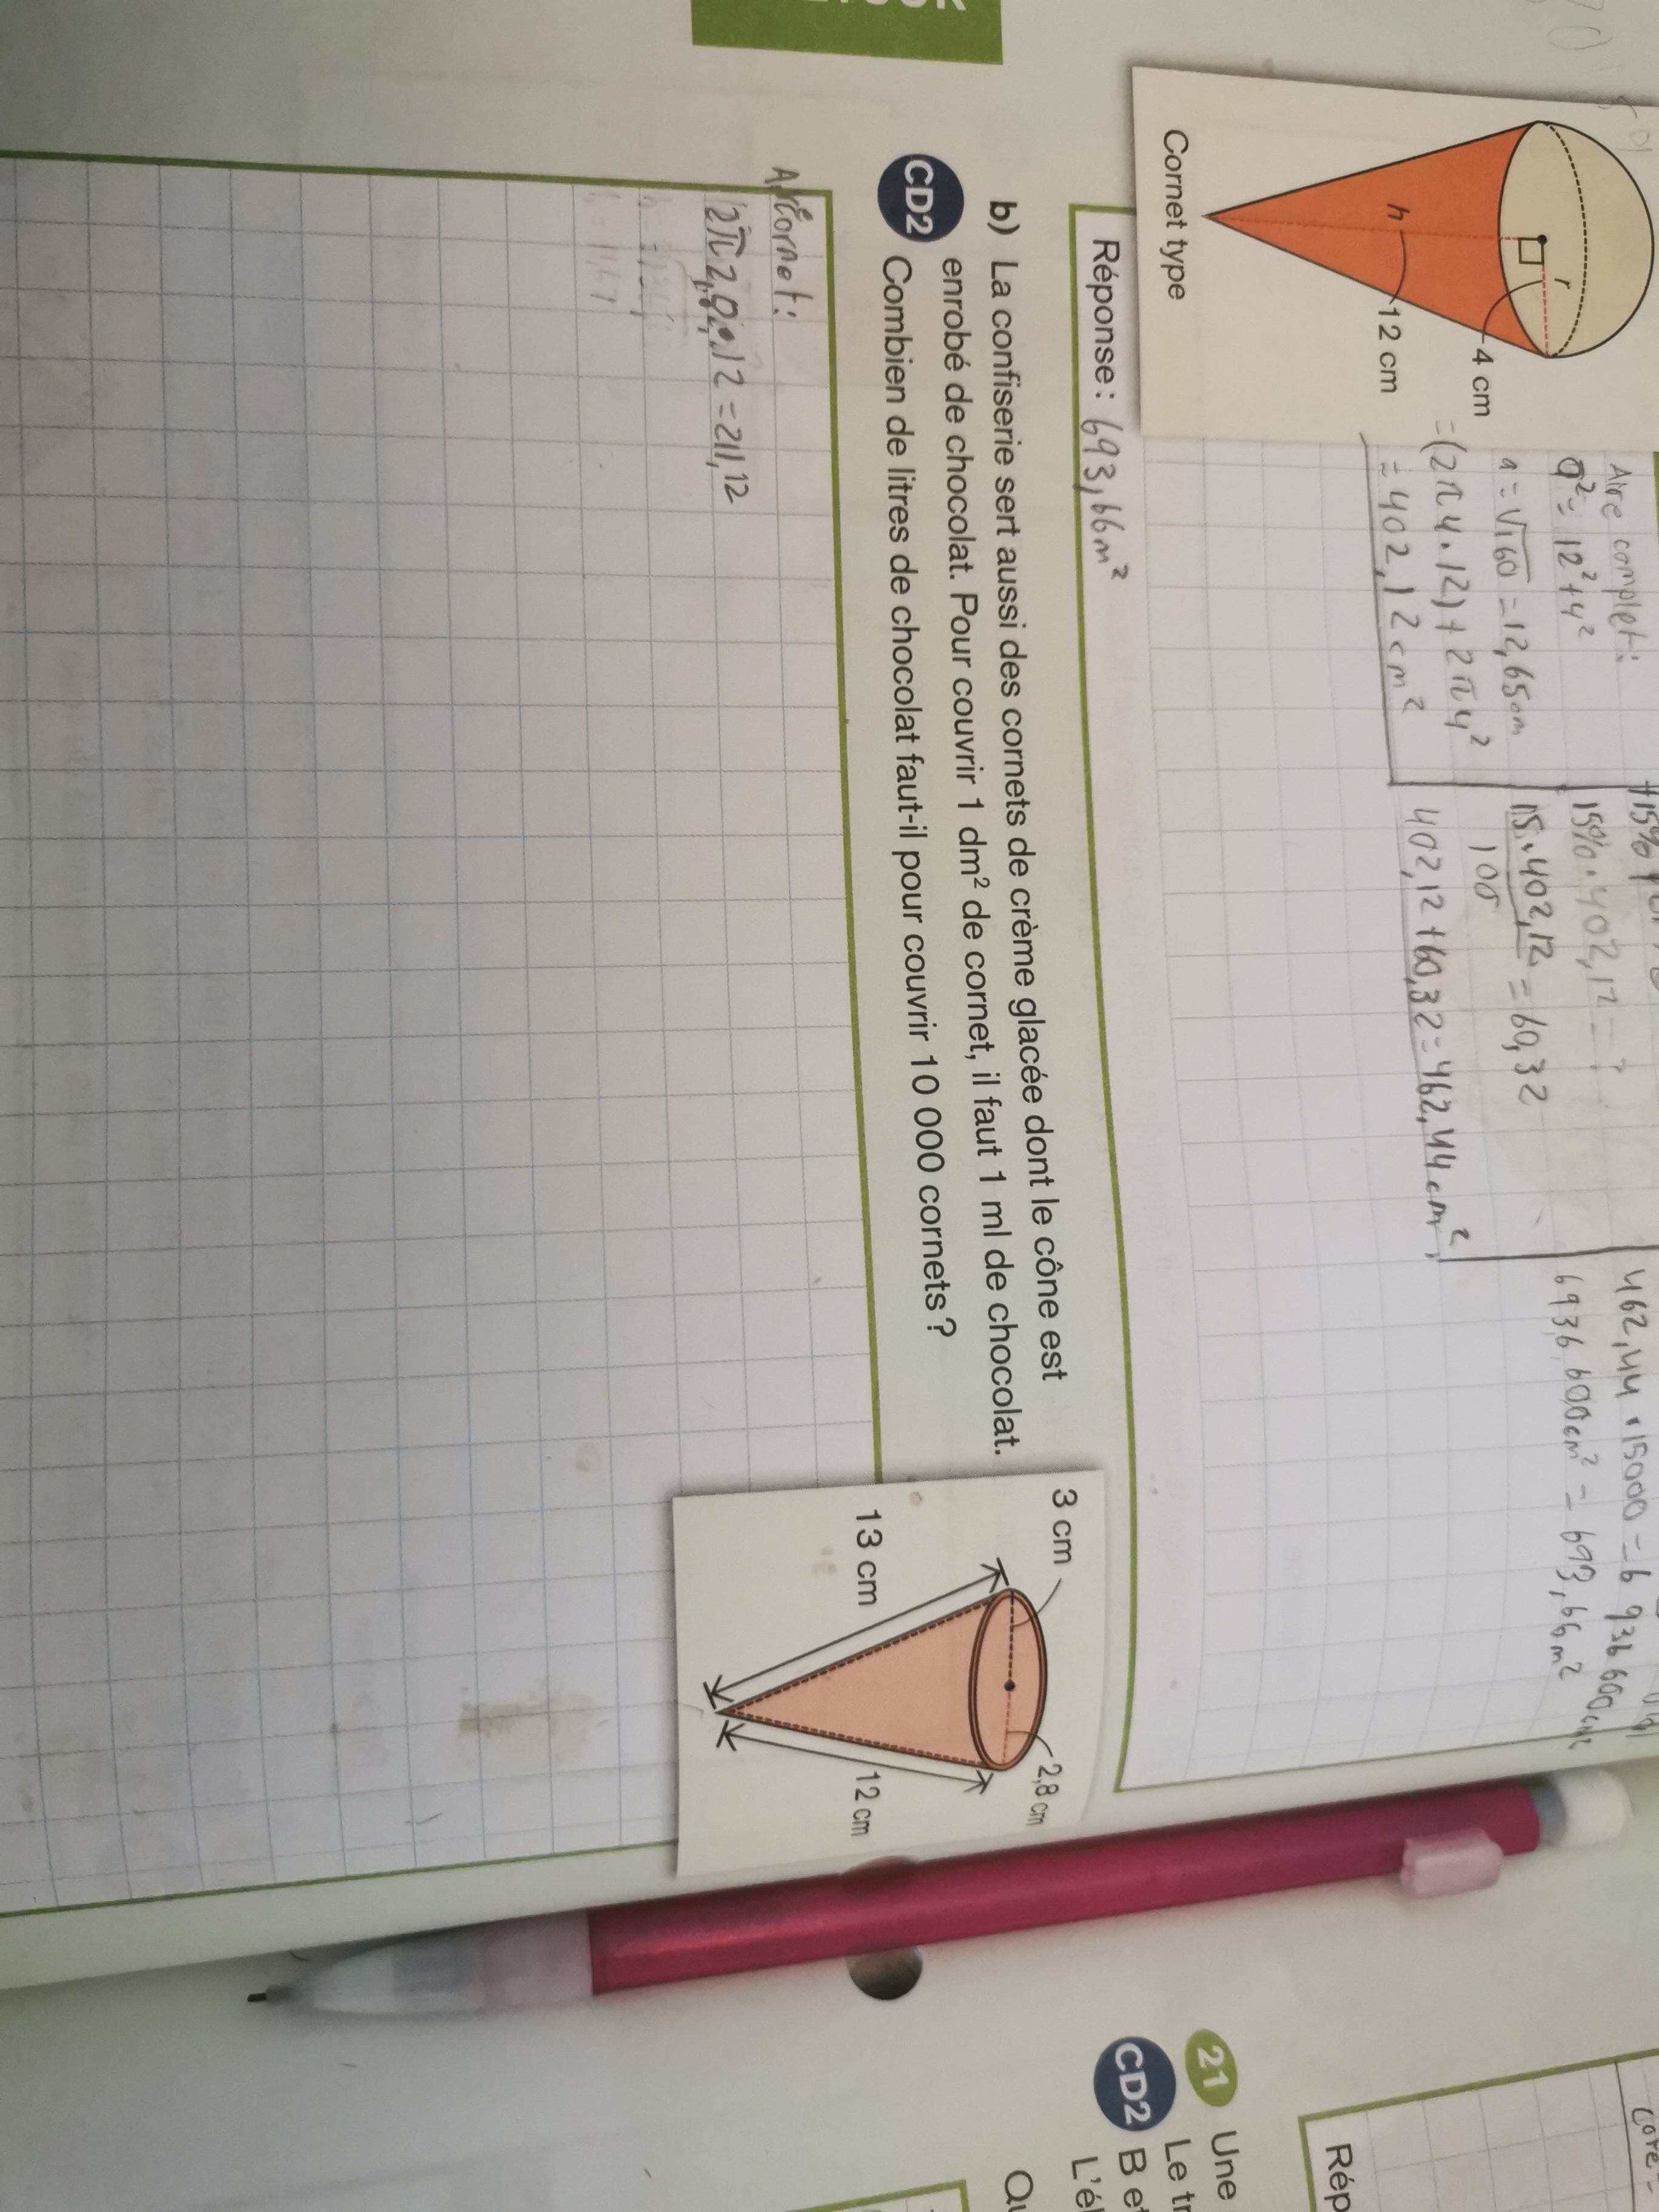 r
4 cm
h
12 cm
Cornet type
Aire complet:
a² = 12² + 4²
a = √160 = 12,65cm
= (2π4.12) + 2π4²
= 402,12cm²
15% . 402,12 = ?
15.402,12 = 60,32
100
402,12 + 60,32 = 462,44cm²
462,44 . 15000 = 6 936 600cm²
6936 600cm² = 693,66m²
Réponse : 693,66m²
b) La confiserie sert aussi des cornets de crème glacée dont le cône est
CD2 enrobé de chocolat. Pour couvrir 1 dm² de cornet, il faut 1 ml de chocolat.
Combien de litres de chocolat faut-il pour couvrir 10 000 cornets ?
3 cm
2,8 cm
13 cm
12 cm
cornet:
2π2,8.12 = 211,12
21 Une
CD2 Le tr
B et
L'él
Qu
Rép